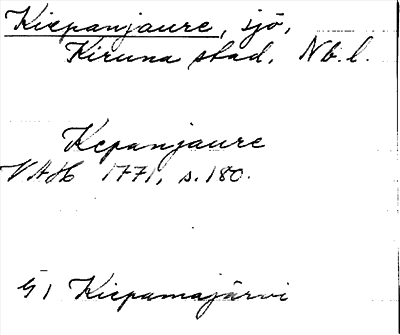 Kiepanjaure, sjö,
Kiruna stad, Nb. l.
Kepanjaure
VAH 1771, s. 180.
Kiepamajärvi